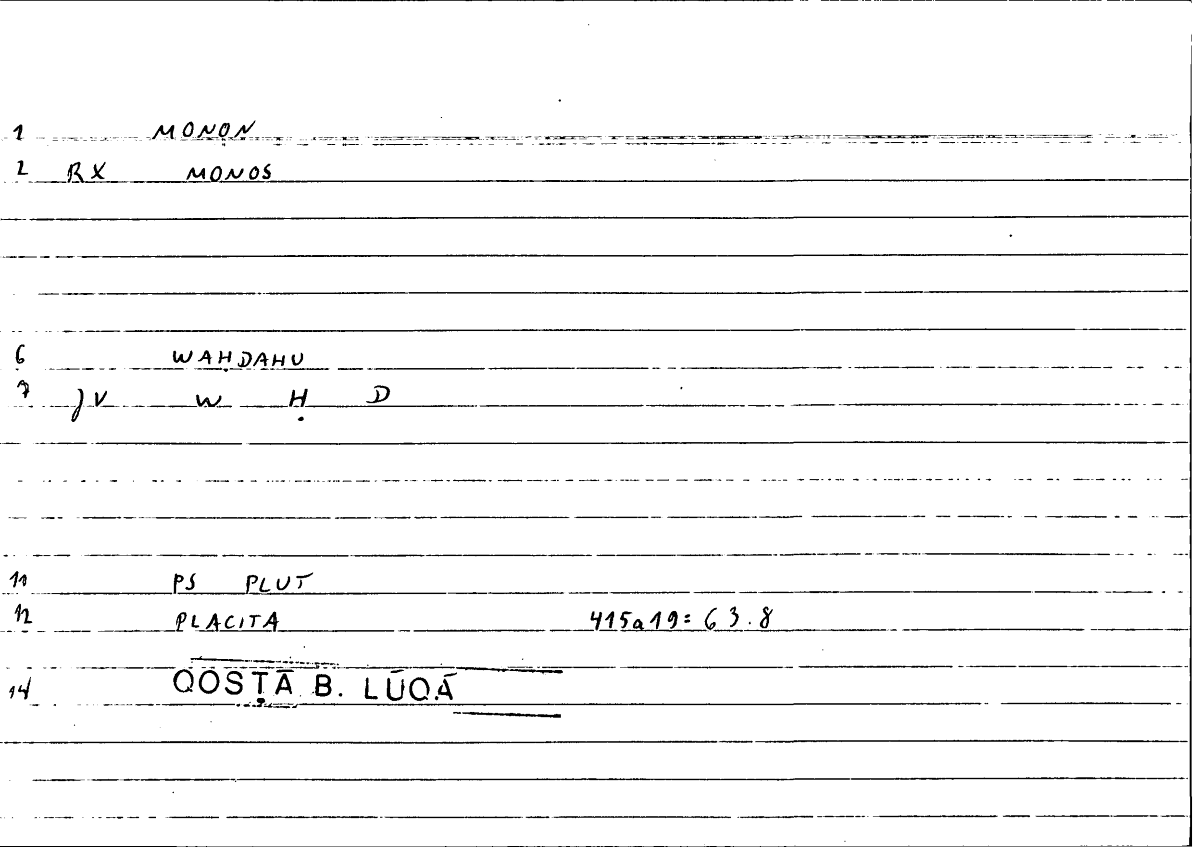 1 MONON
2 RX MONOS
6 WAḤDAHU
7 JV W Ḥ D
11 PS PLUT
12 PLACITA 415a19= 63.8
14 QOSṬĀ B. LŪQĀ